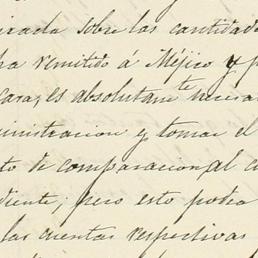 sobre las cantidade
ha remitido á Méjico y p
cara, es absolutamte necesa
ministracion y tomar el
to de comparacion, al c
diente; pero esto podra
las cuentas respectivas